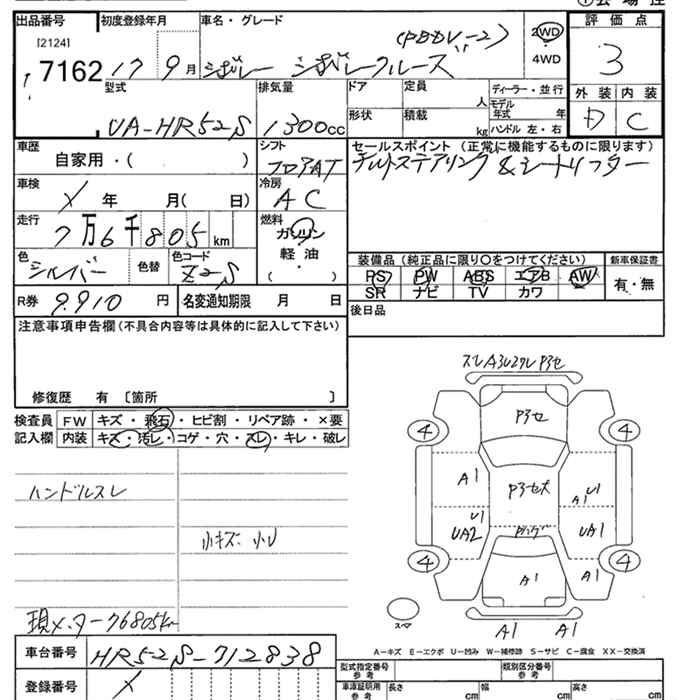 出品番号 初度登録年月 車名・グレード 評価点
[2124]
7162 17 9月 シボレー シボレークルーズ (PBDV-2) 2WD ・ 4WD 3
型式 排気量 ドア 定員 人 ディーラー・並行 外装 内装
UA-HR52S 1300cc 形状 積載 kg モデル年式 年 ハンドル 左・右 D C
車歴 自家用・( ) シフト フロアAT セールスポイント (正常に機能するものに限ります)
チルトステアリング & シートリフター
車検 X 年 月( 日) 冷房 AC
走行 7万6千805km 燃料 ガソリン 軽油 ・ ( )
色 シルバー 色替 色コード Z2S
装備品 (純正品に限り○をつけてください) 新車保証書
PS PW ABS エアB AW 有・無
SR ナビ TV カワ
R券 9.910円 名変通知期限 月 日 後日品
注意事項申告欄 (不具合内容等は具体的に記入して下さい)
修復歴 有 〔箇所 〕
検査員 FW キズ・飛石・ヒビ割・リペア跡・×要
記入欄 内装 キズ・汚レ・コゲ・穴・スレ・キレ・破レ
ハンドルスレ
小キズ 小U
現メーター76805km
車台番号 HR52S-712838
登録番号 X
スレA3U2ワレP3セ
P3セ
4 4
A1 P3セ大 A1 U1
U1
UA2 UA1
4 4
A1 A1
A1 A1
スペア
A-キズ E-エクボ U-凹み W-補修跡 S-サビ C-腐食 XX-交換済
型式指定番号 参考 類別区分番号 参考
車庫証明用 参考 長さ cm 幅 cm 高さ cm